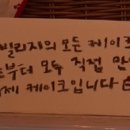 빌리지의 모든 케이크
부터 모두 직접 만
제 케이크입니다